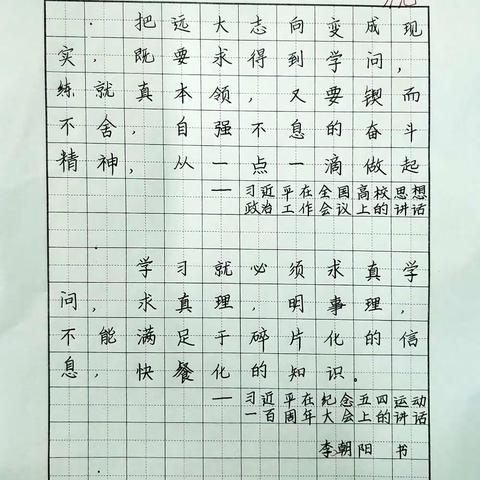 把远大志向变成现
实，既要求得到学问，
练就真本领，又要锲而
不舍，自强不息的奋斗
精神，从一点一滴做起
——习近平在全国高校思想
政治工作会议上的讲话
学习就必须求真学
问，求真理，明事理，
不能满足于碎片化的信
息，快餐化的知识。
——习近平在纪念五四运动
一百周年大会上的讲话
李朝阳 书